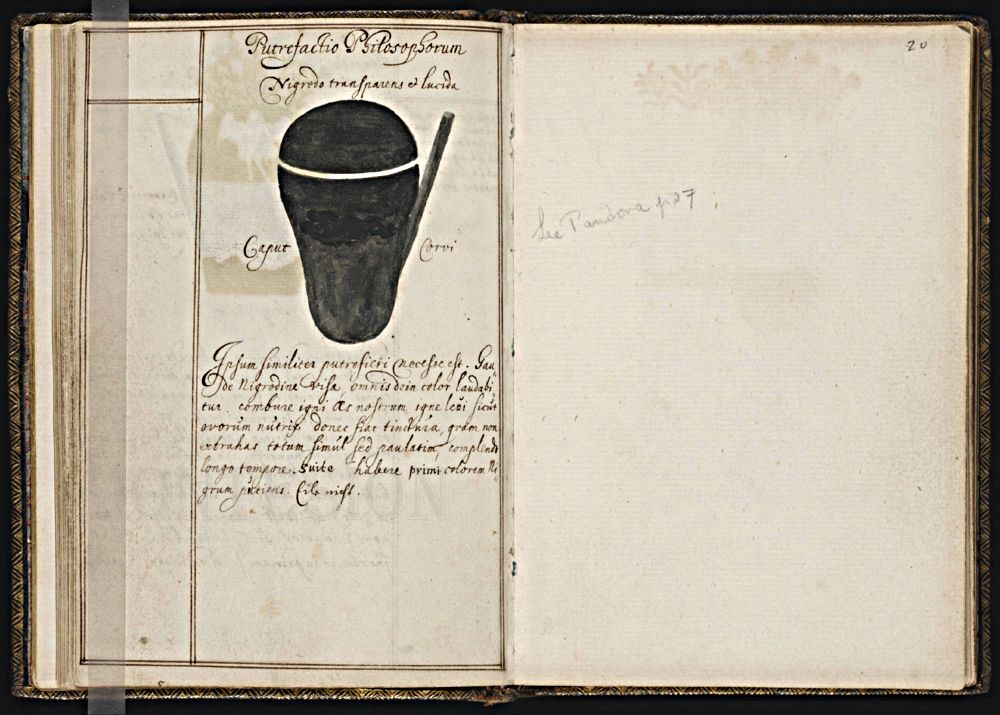 Putrefactio Philosophorum
Nigredo transparens & lucida
Caput Corvi
Ipsum similiter putrefieri necesse est. Gau,
de Nigredine visa omnis dein color laudabi
tur. combure igni Æs nostrum igne levi sicut
ovorum nutrix donec fiat tinctura, quam non
extrahas totum simul sed paulatim, complendo
longo tempore. suite habere primi colorem Ni,
grum patiens. Eile nicht.
20
See Pandora p27